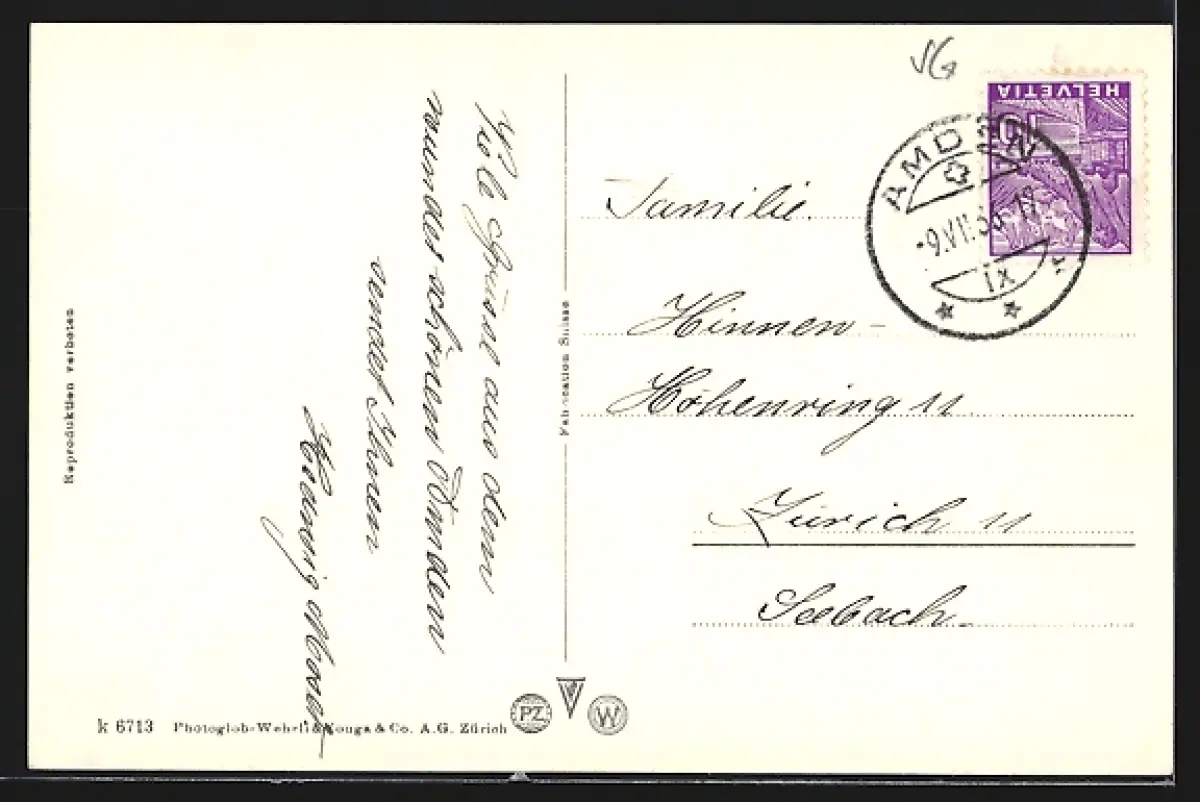 Viele Grüsse aus dem
wunderschönen Amden
sendet Ihnen
Familie
Hinnen-
Höhenring 11
Zürich 11
Seebach.
HELVETIA
10
AMDEN
9.VII.
19
IX
VG
Reproduktion verboten
Fabrication Suisse
k 6713 Photoglob-Wehrli & Vouga & Co. A.G. Zürich
PZ
V
W